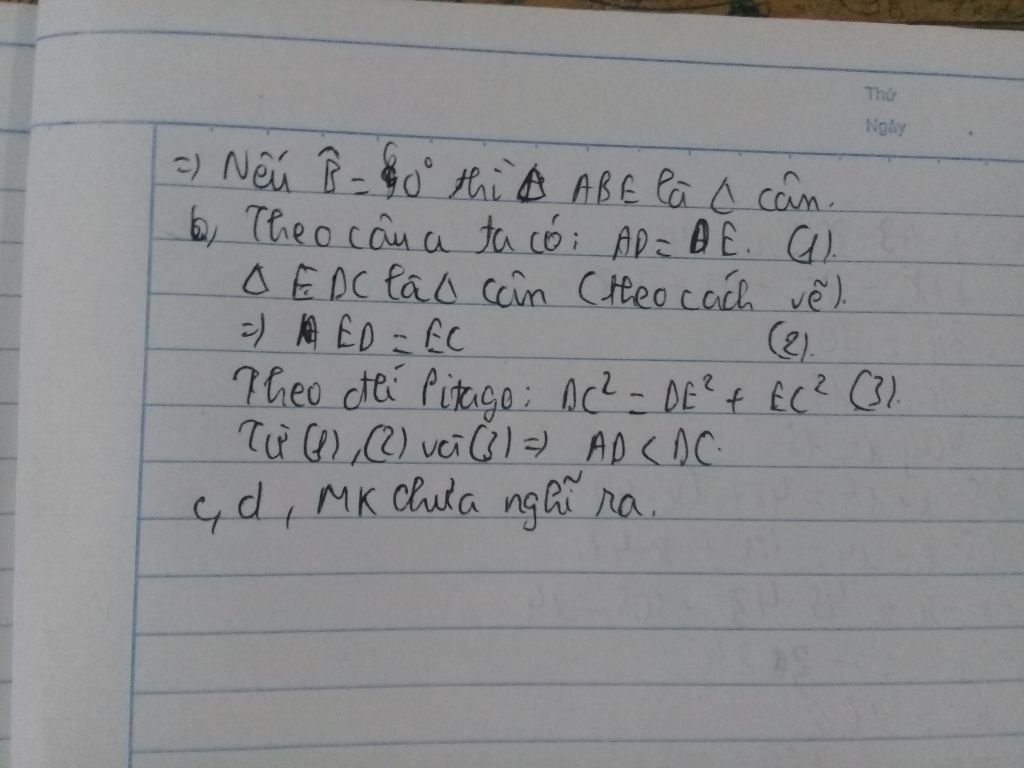 Thứ
Ngày
=) Nếu B̂ = 90° thì Δ ABE là Δ cân.
b, Theo câu a ta có: AD = DE. (1).
Δ EDC là Δ cân (theo cách vẽ).
=) ED = EC (2).
Theo đlí Pitago: DC² = DE² + EC² (3).
Từ (1), (2) và (3) => AD < DC.
c, d, MK chưa nghĩ ra.